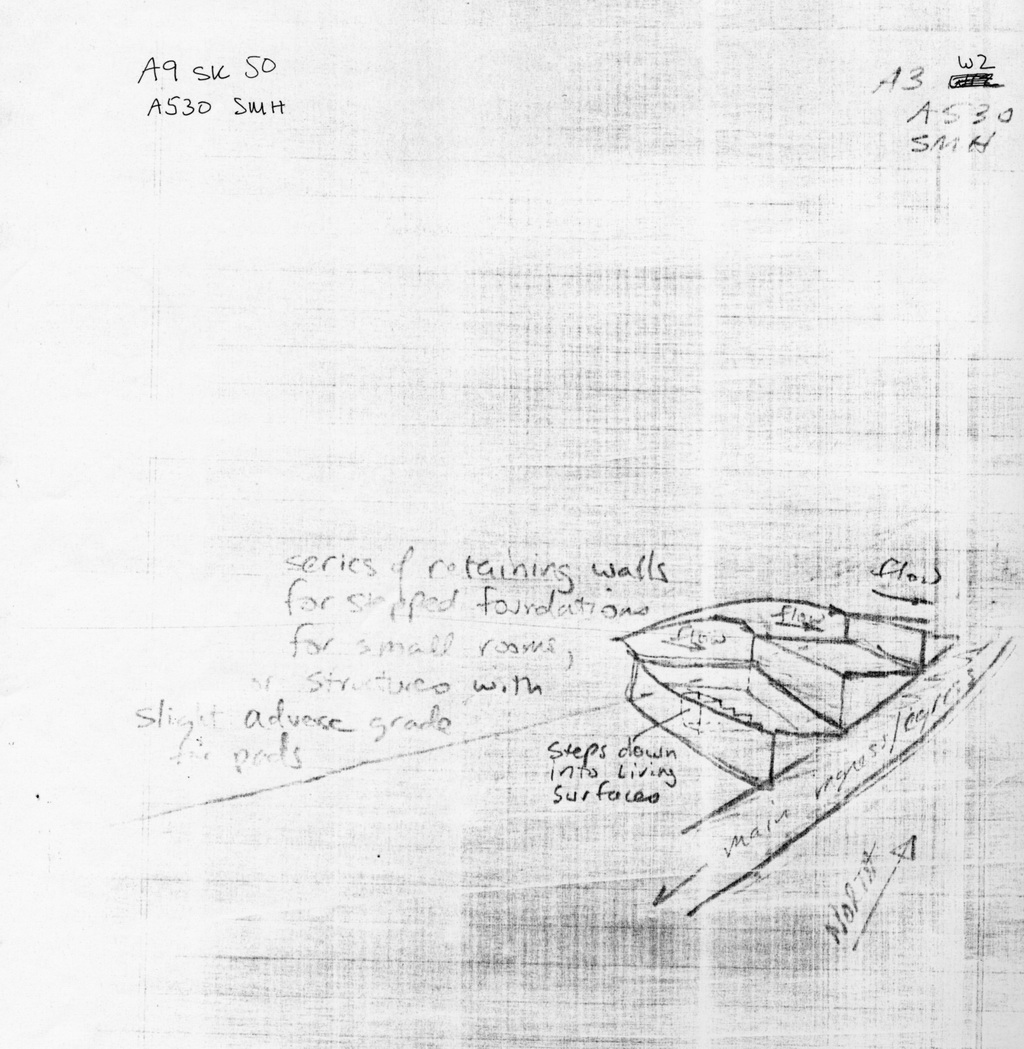 A9 SK 50
A530 SMH
W2
A3
A530
SMH
series of retaining walls
for stepped foundations
for small rooms,
or structures with
slight adverse grade
for pads
flow
flow
flow
steps down
into living
surfaces
main ingress/egress
North